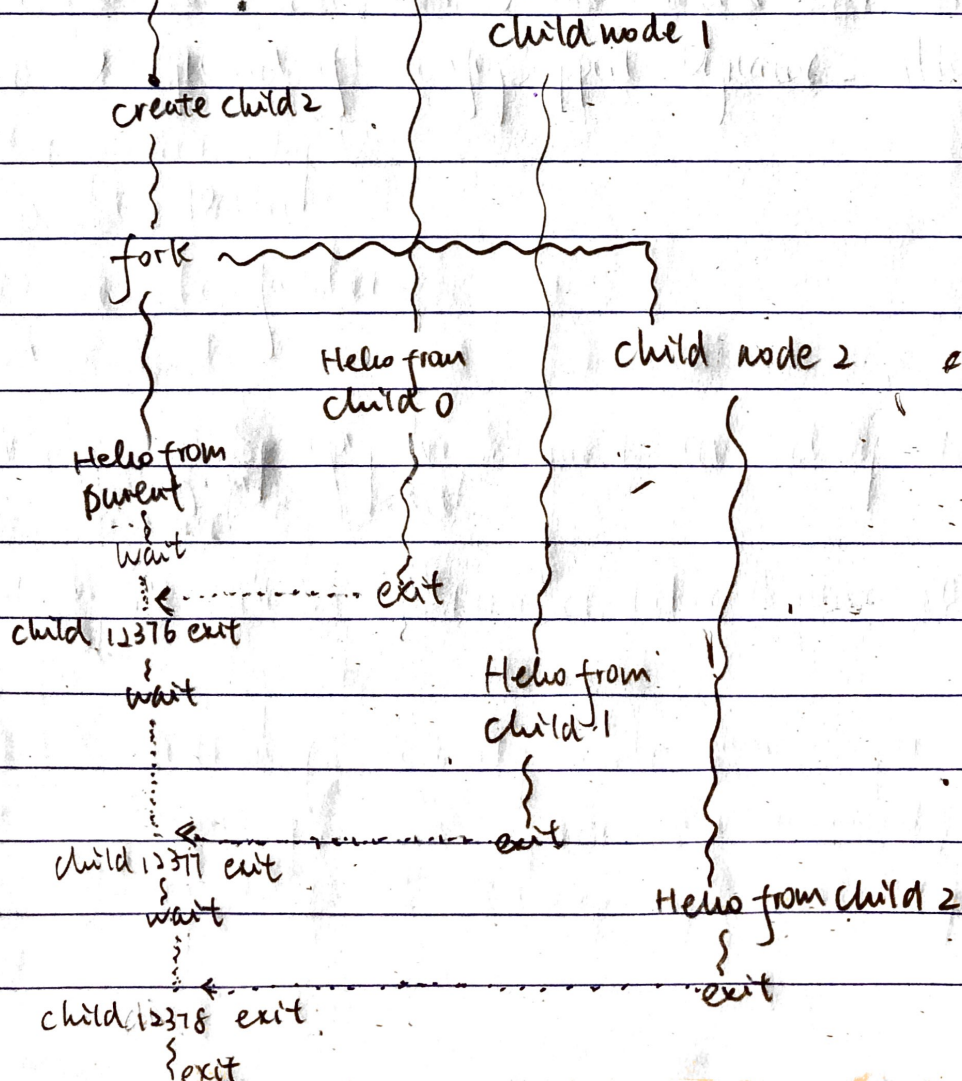 child node 1
create child 2
fork
Hello from
child 0
child node 2
Hello from
parent
wait
exit
child 12376 exit
wait
Hello from
child 1
exit
child 12377 exit
wait
Hello from child 2
exit
child 12378 exit
exit